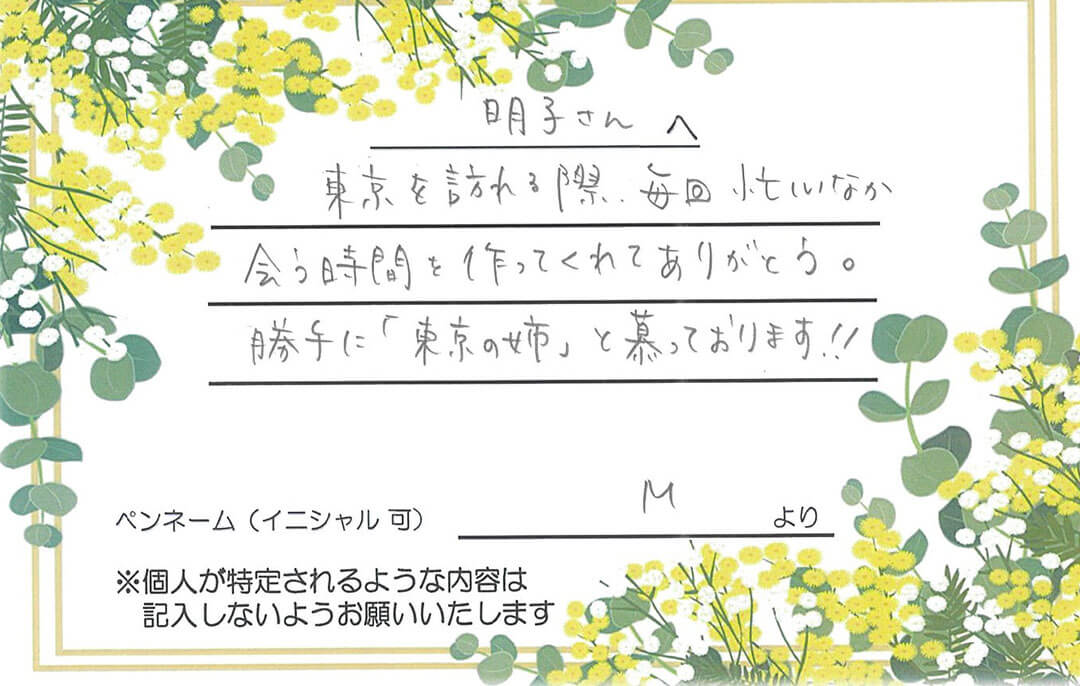 明子さん へ
東京を訪れる際、毎回 忙しいなか
会う時間を作ってくれてありがとう。
勝手に「東京の姉」と慕っております!!
ペンネーム（イニシャル 可） M より
※個人が特定されるような内容は
記入しないようお願いいたします